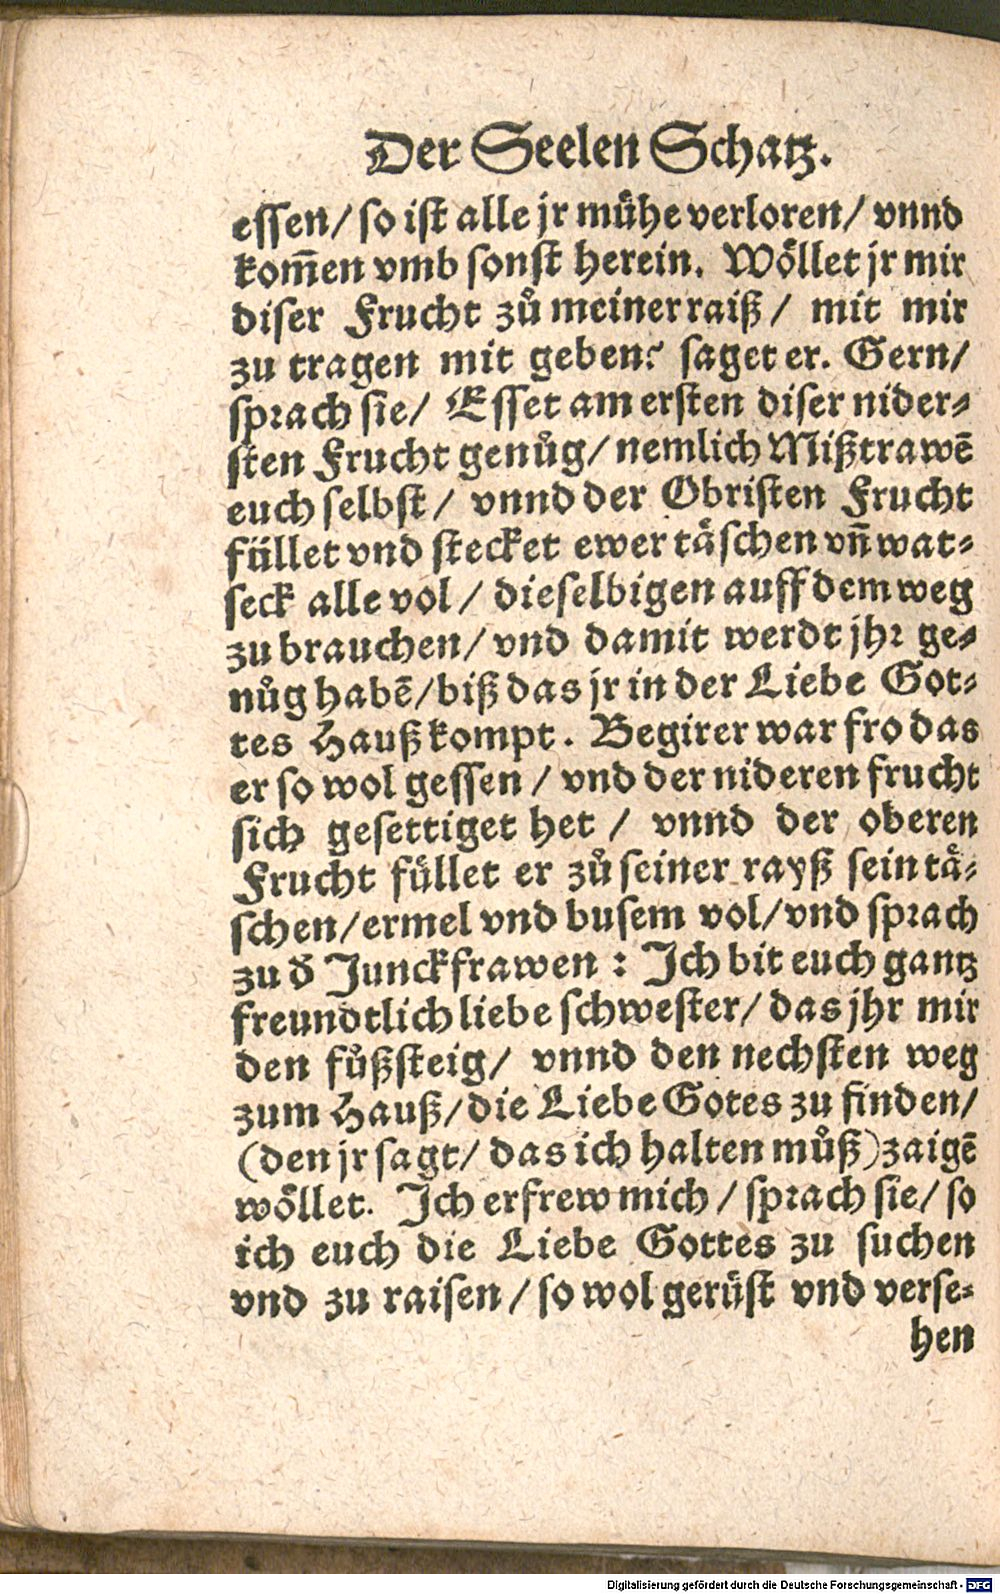 Der Seelen Schatz.
essen/ so ist alle jr mühe verloren/ vnnd
kom̃en vmb sonst herein. Wöllet jr mir
diser Frucht zů meiner raiß/ mit mir
zu tragen mit geben? saget er. Gern/
sprach sie/ Esset am ersten diser nider⸗
sten Frucht genůg/ nemlich Mißtrawẽ
euch selbst/ vnnd der Obristen Frucht
füllet vnd stecket ewer täschen vñ wat⸗
seck alle vol/ dieselbigen auff dem weg
zu brauchen/ vnd damit werdt jhr ge⸗
nůg habẽ/ biß das jr in der Liebe Got⸗
tes Hauß kompt. Begirer war fro das
er so wol gessen/ vnd der nideren frucht
sich gesettiget het/ vnnd der oberen
Frucht füllet er zů seiner rayß sein tä⸗
schen/ ermel vnd busem vol/ vnd sprach
zu d̕ Junckfrawen: Ich bit euch gantz
freundtlich liebe schwester/ das jhr mir
den fůßsteig/ vnnd den nechsten weg
zum Hauß/ die Liebe Gotes zu finden/
(den jr sagt/ das ich halten můß) zaigẽ
wöllet. Ich erfrew mich/ sprach sie/ so
ich euch die Liebe Gottes zu suchen
vnd zu raisen/ so wol gerüst vnd verse⸗
hen
Digitalisierung gefördert durch die Deutsche Forschungsgemeinschaft - DFG